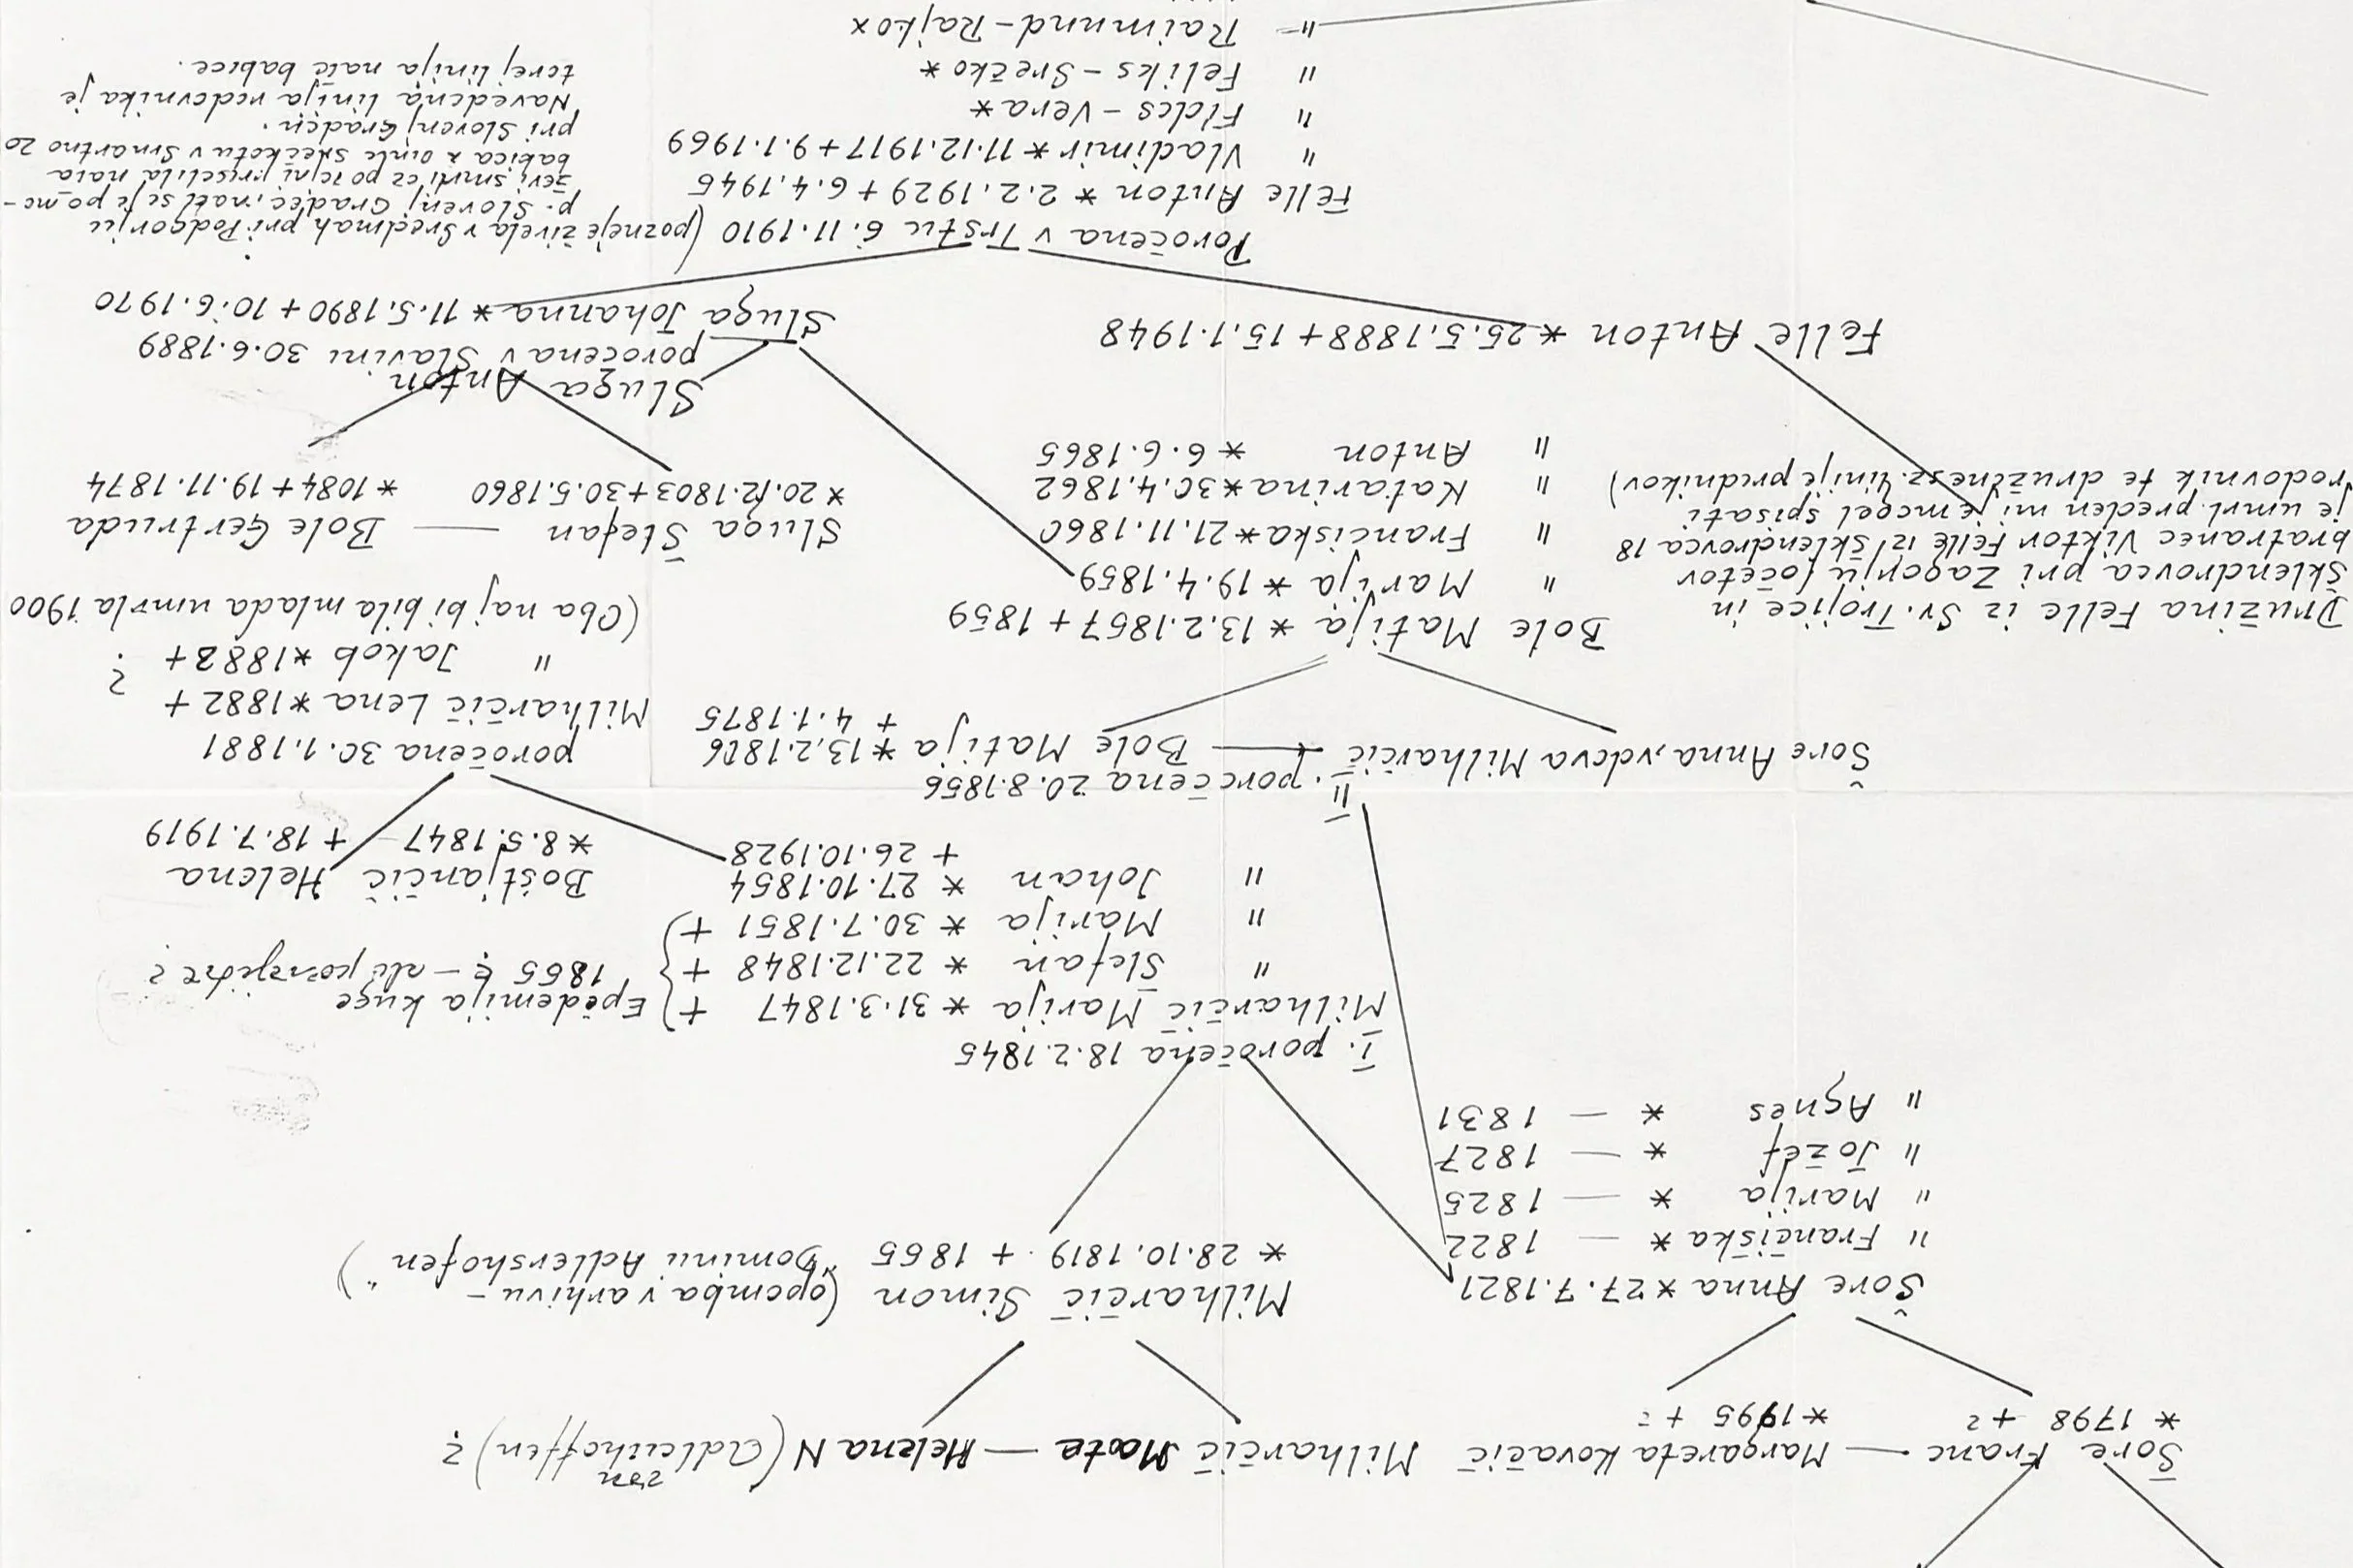 Šore Franc — Margareta Kovačič
* 1798 + ? *1995 + ?
Milharčič Mate — Helena N (von Adleihoffen) ?
Šore Anna *27.7.1821
" Frančiška * — 1822
" Marija * — 1825
" Jožef * — 1827
" Agnes * — 1831
Milharčič Simon (opomba v arhivu –
* 28.10.1819. + 1865 "Dominu Adlershofen")
I. poročena 18.2.1845
Milharčič Marija * 31.3.1847 +
" Štefan * 22.12.1848 +
" Marija * 30.7.1851 +
Epidemija kuge
1865 ? – ali pozneje ?
" Johan * 27.10.1854
+ 26.10.1928
Boštjančič Helena
*8.5.1847 + 18.7.1919
II. poročena 20.8.1856
Šore Anna, vdova Milharčič — Bole Matija *13.2.1826
+ 4.1.1875
poročena 30.1.1881
Milharčič Lena *1882 +
" Jakob *1883+ ?
(Oba naj bi bila mlada umrla 1900
Bole Matija * 13.2.1857 + 1859
" Marija * 19.4.1859
" Franciska *21.11.1860
" Katarina *30.4.1862
" Anton * 6.6.1865
Družina Felle iz Sv. Trojice in
Šklendrovca pri Zagorju (očetov
bratranec Viktor Felle iz Šklendrovca 18
je umrl preden mi je mogel spisati
rodovnik te družine sz. linije prednikov)
Sluga Štefan — Bole Gertruda
*20.12.1803+30.5.1860 * 1084+19.11.1874
Sluga Anton.
poročena v Slavini 30.6.1889
Felle Anton * 25.5.1888+15.1.1948
Sluga Johanna * 11.5.1890 + 10.6.1970
Poročena v Trstu 6.11.1910 (pozneje živela v Šredmah pri Podgorju
p. Slovenj Gradec, nato se je po mo-
ževi smrti
babica z
pri Slovenj Gradcu.
Navedena linija rodovnika je
torej linija naše babice.
Felle Anton * 2.2.1929 + 6.4.1945
" Vladimir * 11.12.1917+9.1.1969
" Fides – Vera *
" Feliks – Srečko *
" Raimund – Rajko x